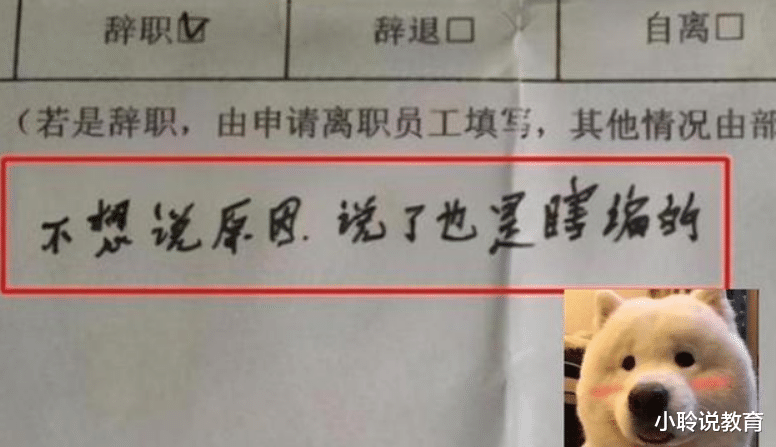 辞职☑ 辞退□ 自离□
（若是辞职，由申请离职员工填写，其他情况由部
不想说原因.说了也是瞎编的
小聆说教育